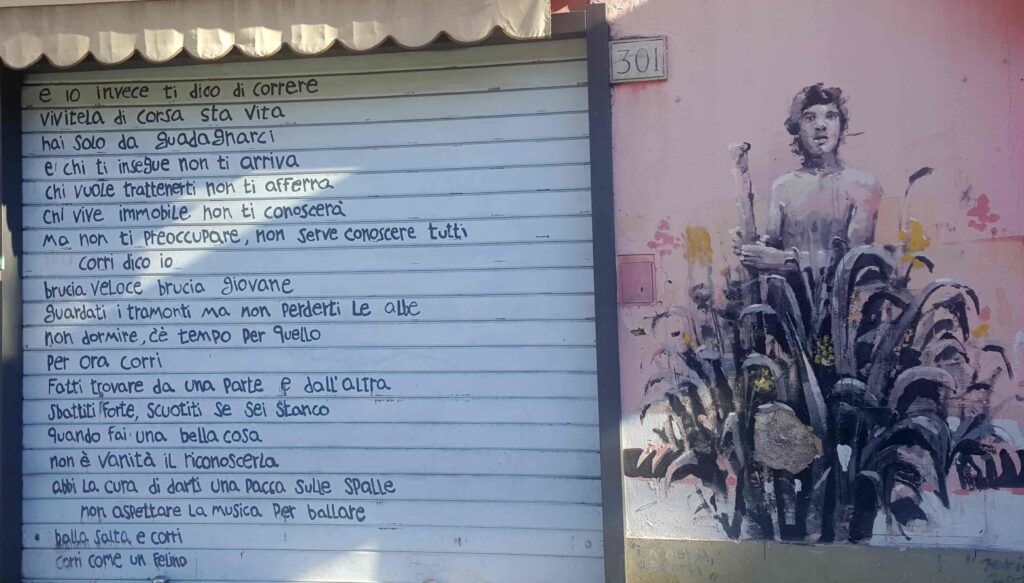 e io invece ti dico di correre
vivitela di corsa sta vita
hai solo da guadagnarci
e chi ti insegue non ti arriva
chi vuole trattenerti non ti afferra
chi vive immobile non ti conoscerà
ma non ti preoccupare, non serve conoscere tutti
corri dico io
brucia veloce brucia giovane
guardati i tramonti ma non perderti le albe
non dormire, c'è tempo per quello
per ora corri
fatti trovare da una parte e dall'altra
sbattiti forte, scuotiti se sei stanco
quando fai una bella cosa
non è vanità il riconoscerla
abbi la cura di darti una pacca sulle spalle
non aspettare la musica per ballare
balla salta e corri
corri come un felino
301